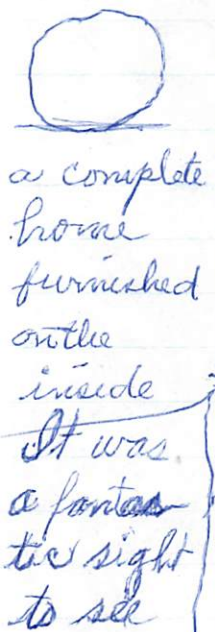 a complete
home
furnished
on the
inside
It was
a fantas
tic sight
to see